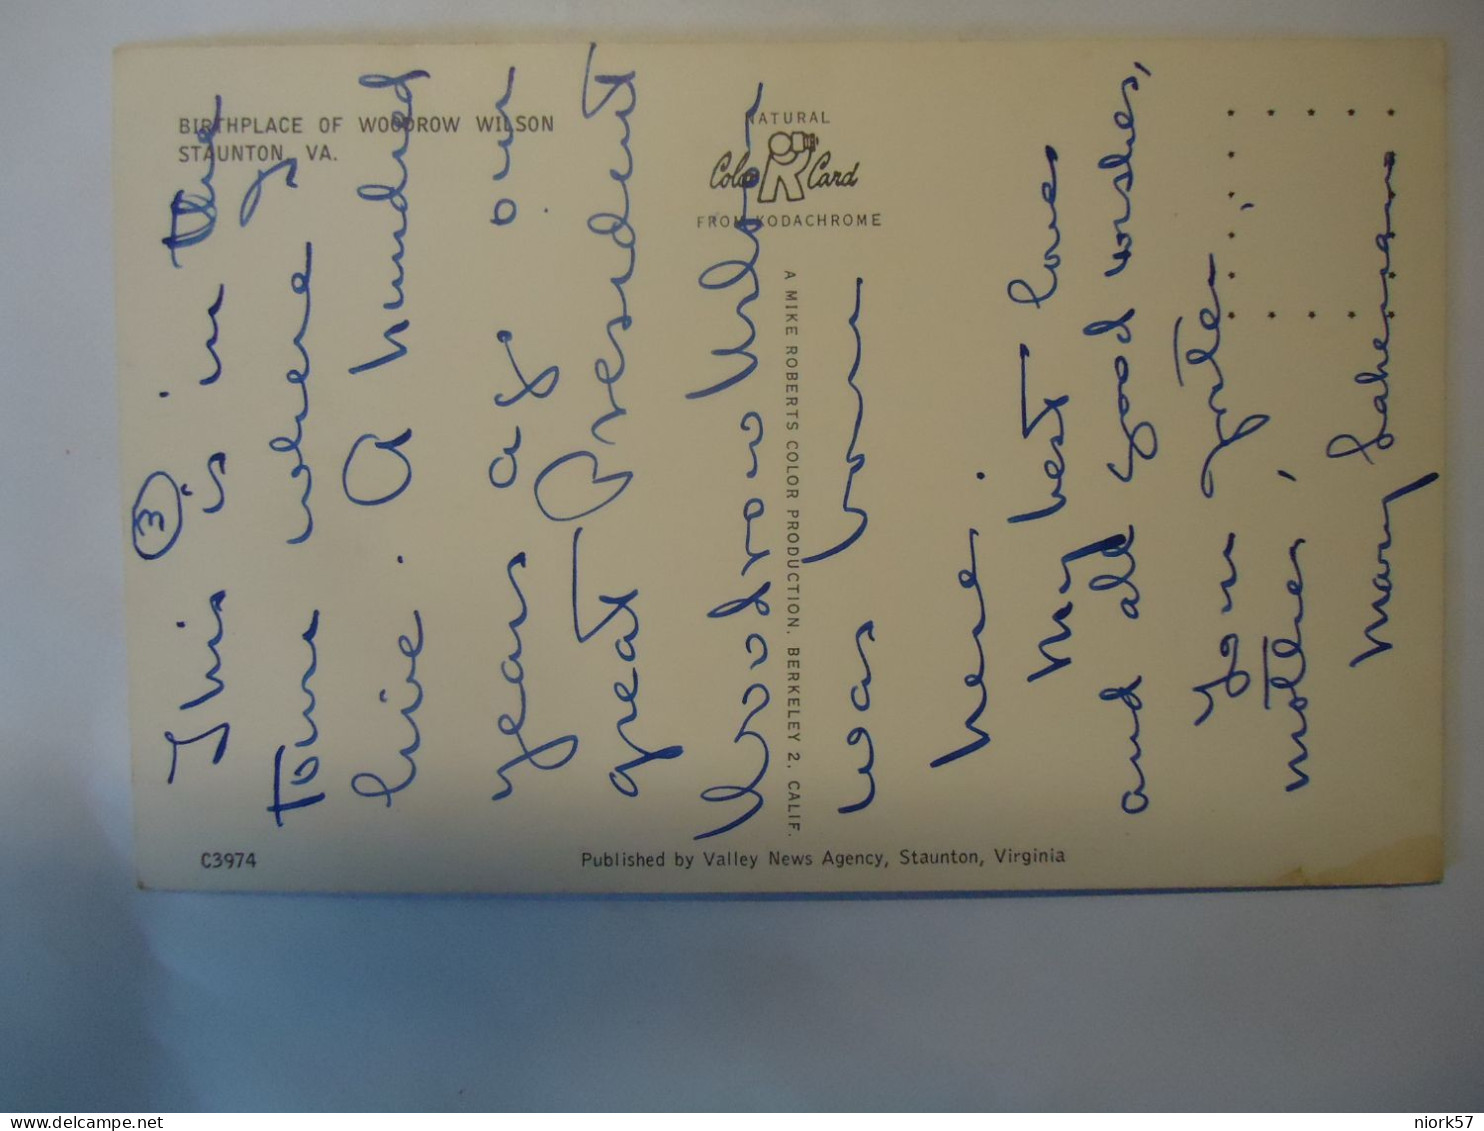 BIRTHPLACE OF WOODROW WILSON
STAUNTON, VA.
NATURAL
Color Card
FROM KODACHROME
A MIKE ROBERTS COLOR PRODUCTION, BERKELEY 2, CALIF.
C3974
Published by Valley News Agency, Staunton, Virginia
3
This is in the
Town where I
live. A hundred
years ago our
great President
Woodrow Wilson
was born
here.
My best love
and all good wishes,
to
mother,
Mary
niork57